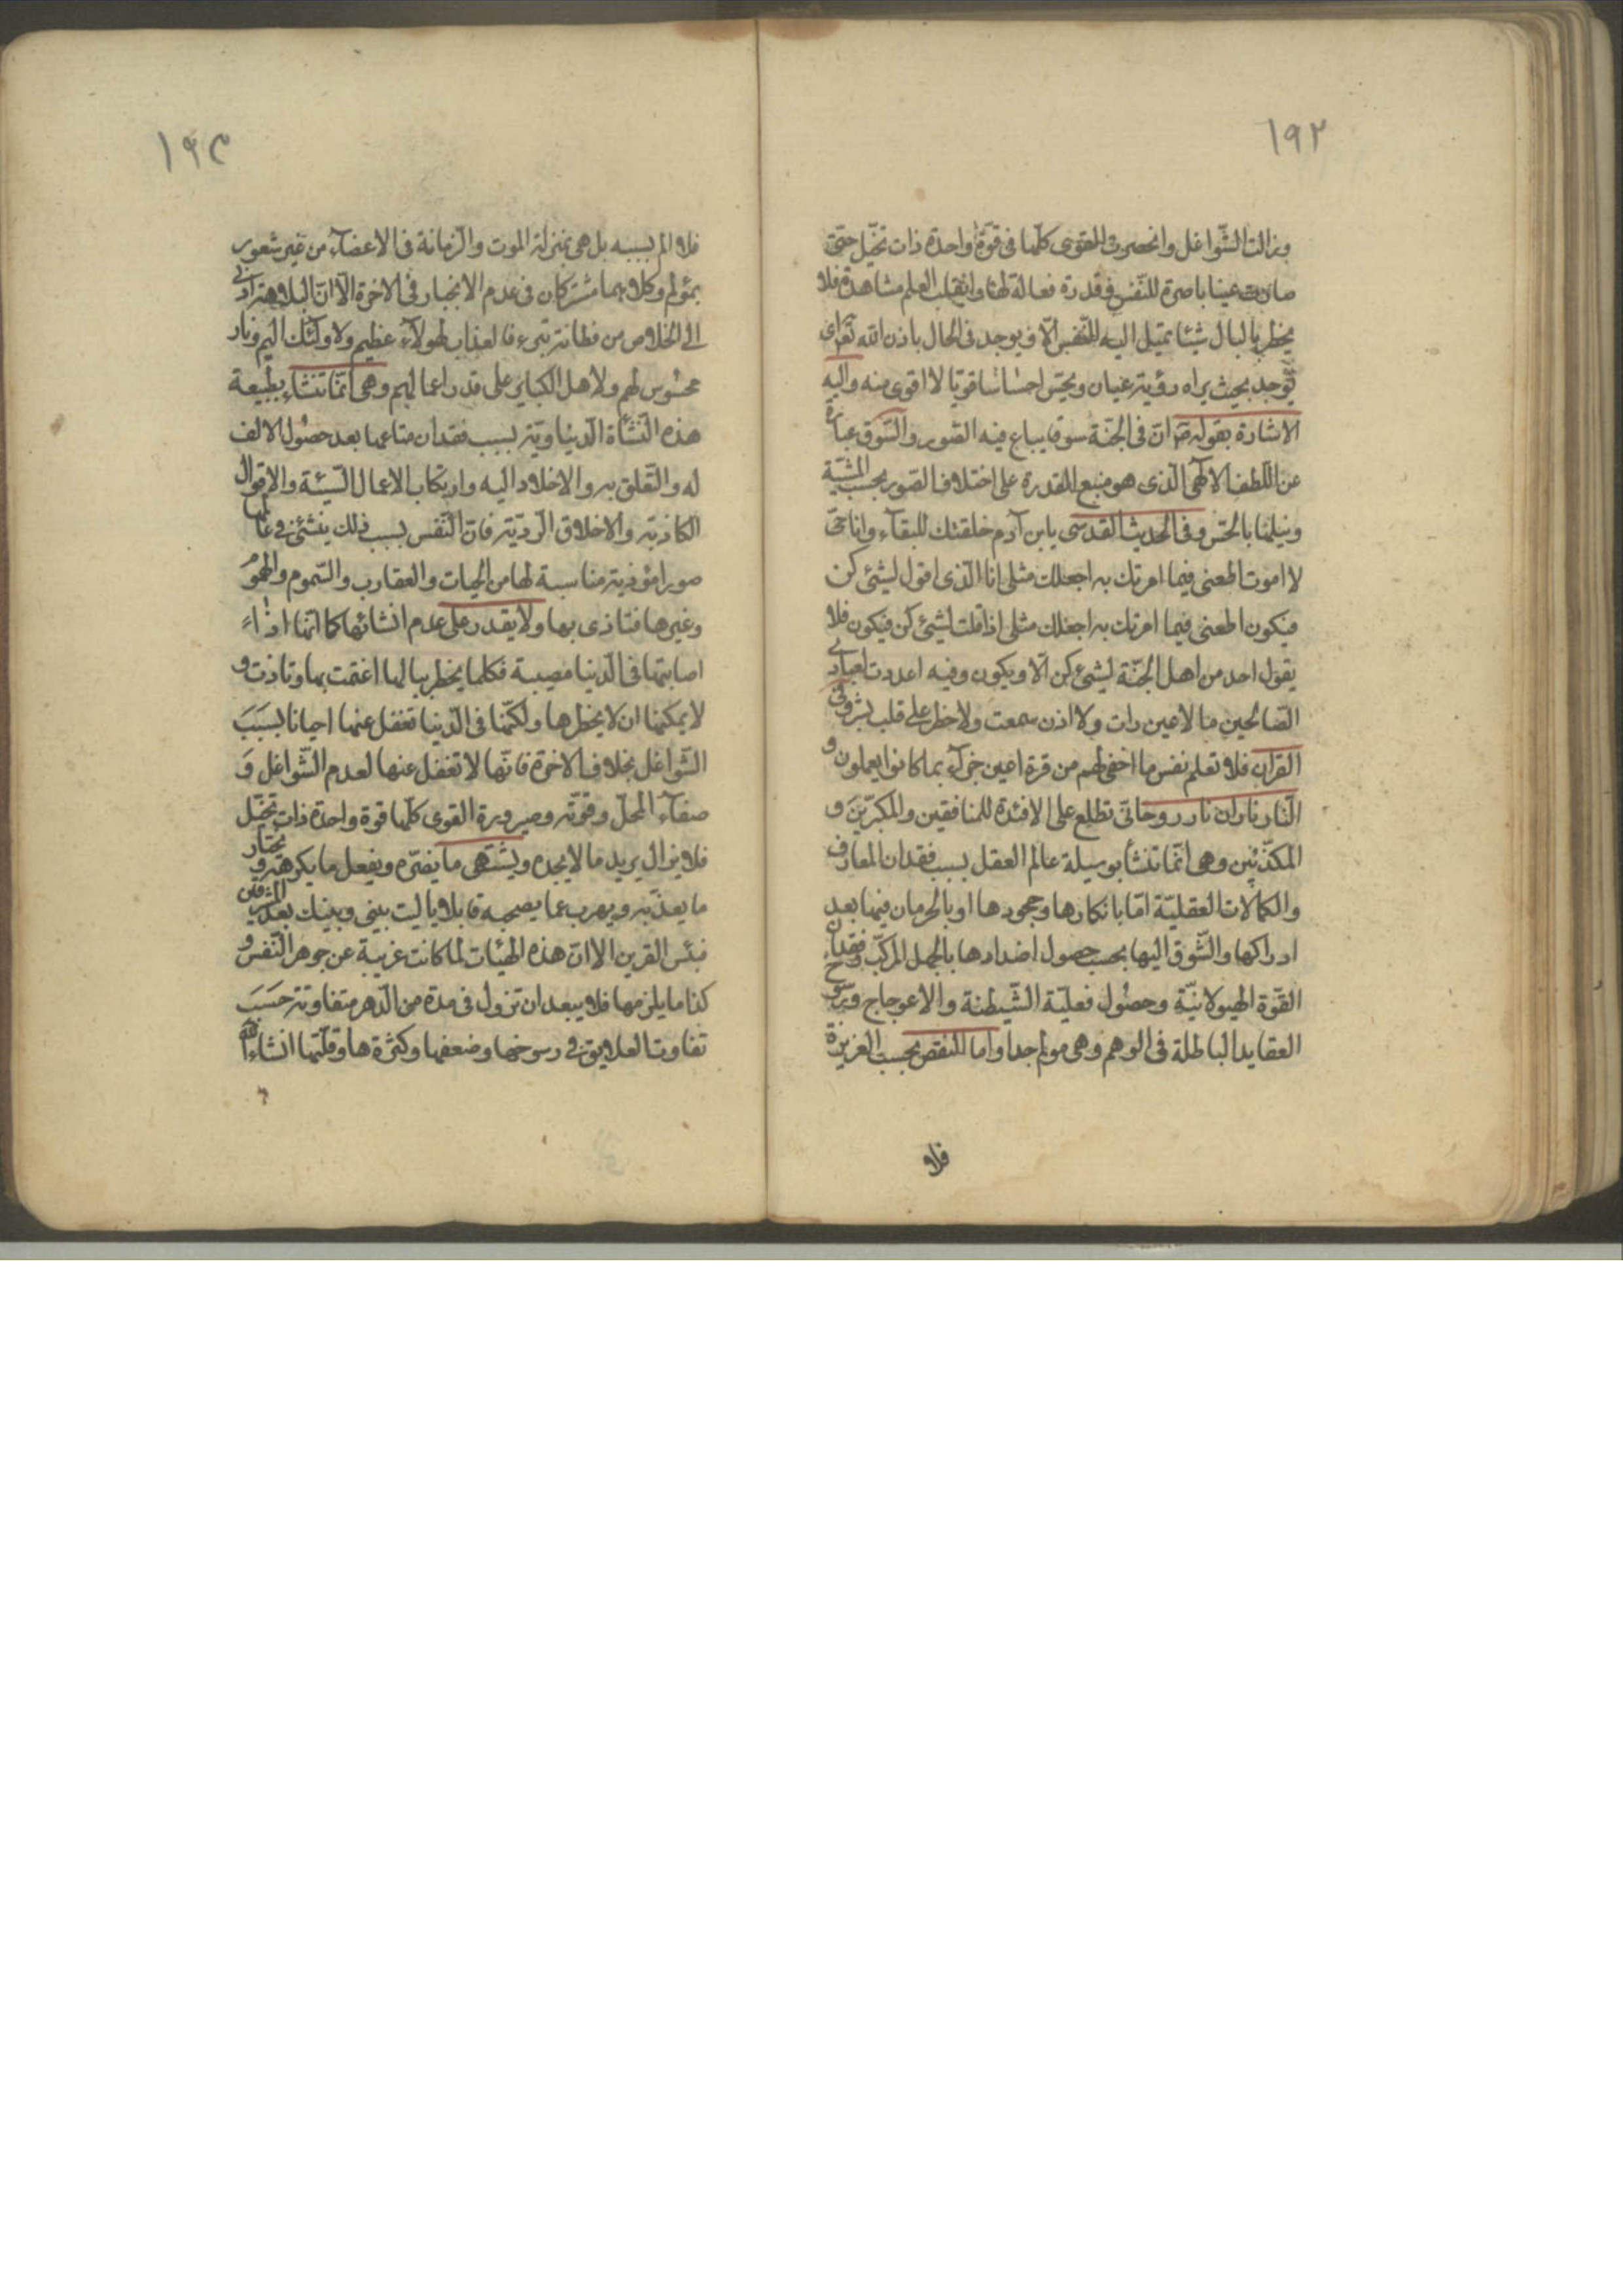 ١٩٢
وزالت الشّواغل وانحصرت القوى كلّها فى قوّة واحدة ذات تخيّل حتى
صارت عينا باصرة للنّفس و قدرة فعالة لها وانقلب العلم مشاهدة فلا
يخطر بالبال شيئا تميل اليه النّفس الّا و يوجد فى الحال باذن الله تعم اى
يوجد بحيث يراه رؤية عيان ويحسّ احساسا قويّا لا اقوى منه واليه
الاشارة بقوله ص انّ فى الجنّة سوقا يباع فيه الصّور والسّوق عبارة
عن اللّطف الالهى الّذى هو منبع القدرة على اختلاف الصّور بحسب المشيّة
وينيلنا بالحسّ وفى الحديث القدسى يابن آدم خلقتك للبقاء وانا حىّ
لا اموت اطعنى فيما امرتك به اجعلك مثلى انا الّذى اقول لشيئ كن
فيكون اطعنى فيما امرتك به اجعلك مثلى اذا قلت لشيئ كن فيكون فلا
يقول احد من اهل الجنّة لشيئ كن الّا ويكون وفيه اعددت لعبادى
الصّالحين ما لا عين رات ولا اذن سمعت ولا خطر على قلب بشر وفى
القران فلا تعلم نفس ما اخفى لهم من قرة اعين جزآء بما كانوا يعملون و
النّار ناران نار روحانى تطلع على الافئدة للمنافقين والمكبرّين و
المكذّبين وهى انّما تنشأ بوسيلة عالم العقل بسبب فقدان المعارف
والكمالات العقليّة امّا بانكارها وجحودها او بالحرمان فيها بعد
ادراكها والشّوق اليها بحسب حصول اضدادها بالجهل المركّب وفقدان
القوّة الهيولانيّة وحصول فعليّة الشّيطنة والاعوجاج ورسوخ
العقايد الباطلة فى الوهم وهى مولم جدا واما النقص بحسب الغريزة
فلا
١٩٣
فلا الم بسببه بل هى بمنزلة الموت والزمانة فى الاعضآء من غير شعور
بمؤلم وكلاهما مشتركان فى عدم الانجبار فى الاخرة الّا انّ البلاهة ادنى
الى الخلاص من فطانة بترى فالعذاب لهولآء عظيم ولاولئك اليم ونار
محسُوس لهم ولاهل الكباير على قدر اعمالهم وهى انّما تنشاء بطبيعة
هذه النّشأة الدّنياويّة بسبب فقدان متاعها بعد حصُول الالف
له والتّعلق به والاخلاد اليه وارتكاب الاعمال السّيئة والاقوال
الكاذبة والاخلاق الرّديّة فانّ النّفس بسبب ذلك ينشئ فى عالمها
صورا مؤذية مناسبة لها من الحيات والعقارب والسّموم والهمومُ
وغيرها فتتاذى بها ولا يقدر على عدم انشائها كما انّها اذا
اصابتها فى الدّنيا مصيبة فكلما يخطر ببالها اغتمت بها وتاذت و
لا يمكنها ان لا يخطرها ولكنّها فى الدّنيا تغفل عنها احيانا بسبَبَ
الشّواغل بخلاف الاخرة فانّها لا تغفل عنها لعدم الشّواغل وَ
صفآء المحلّ وقوّته وصيرورة القوى كلّها قوة واحدة ذات تخيّل
فلا يزال يريد ما لا يجده ويشتهى ما يضرّه ويفعل ما يكرهه ويختار
ما يعذّبه ويهرب عما يصحبه قايلا ياليت بينى وبينك بعد المشرقين
فبئس القرين الّا انّ هذه الهيئات لما كانت غريبة عن جوهر النّفس و
كذا ما يلزمها فلا يبعد ان تزول فى مدة من الدّهر متفاوتة حسَبَ
تفاوت العلايق فى رسوخها وضعفها وكثرتها وقلّتها انشاء الله